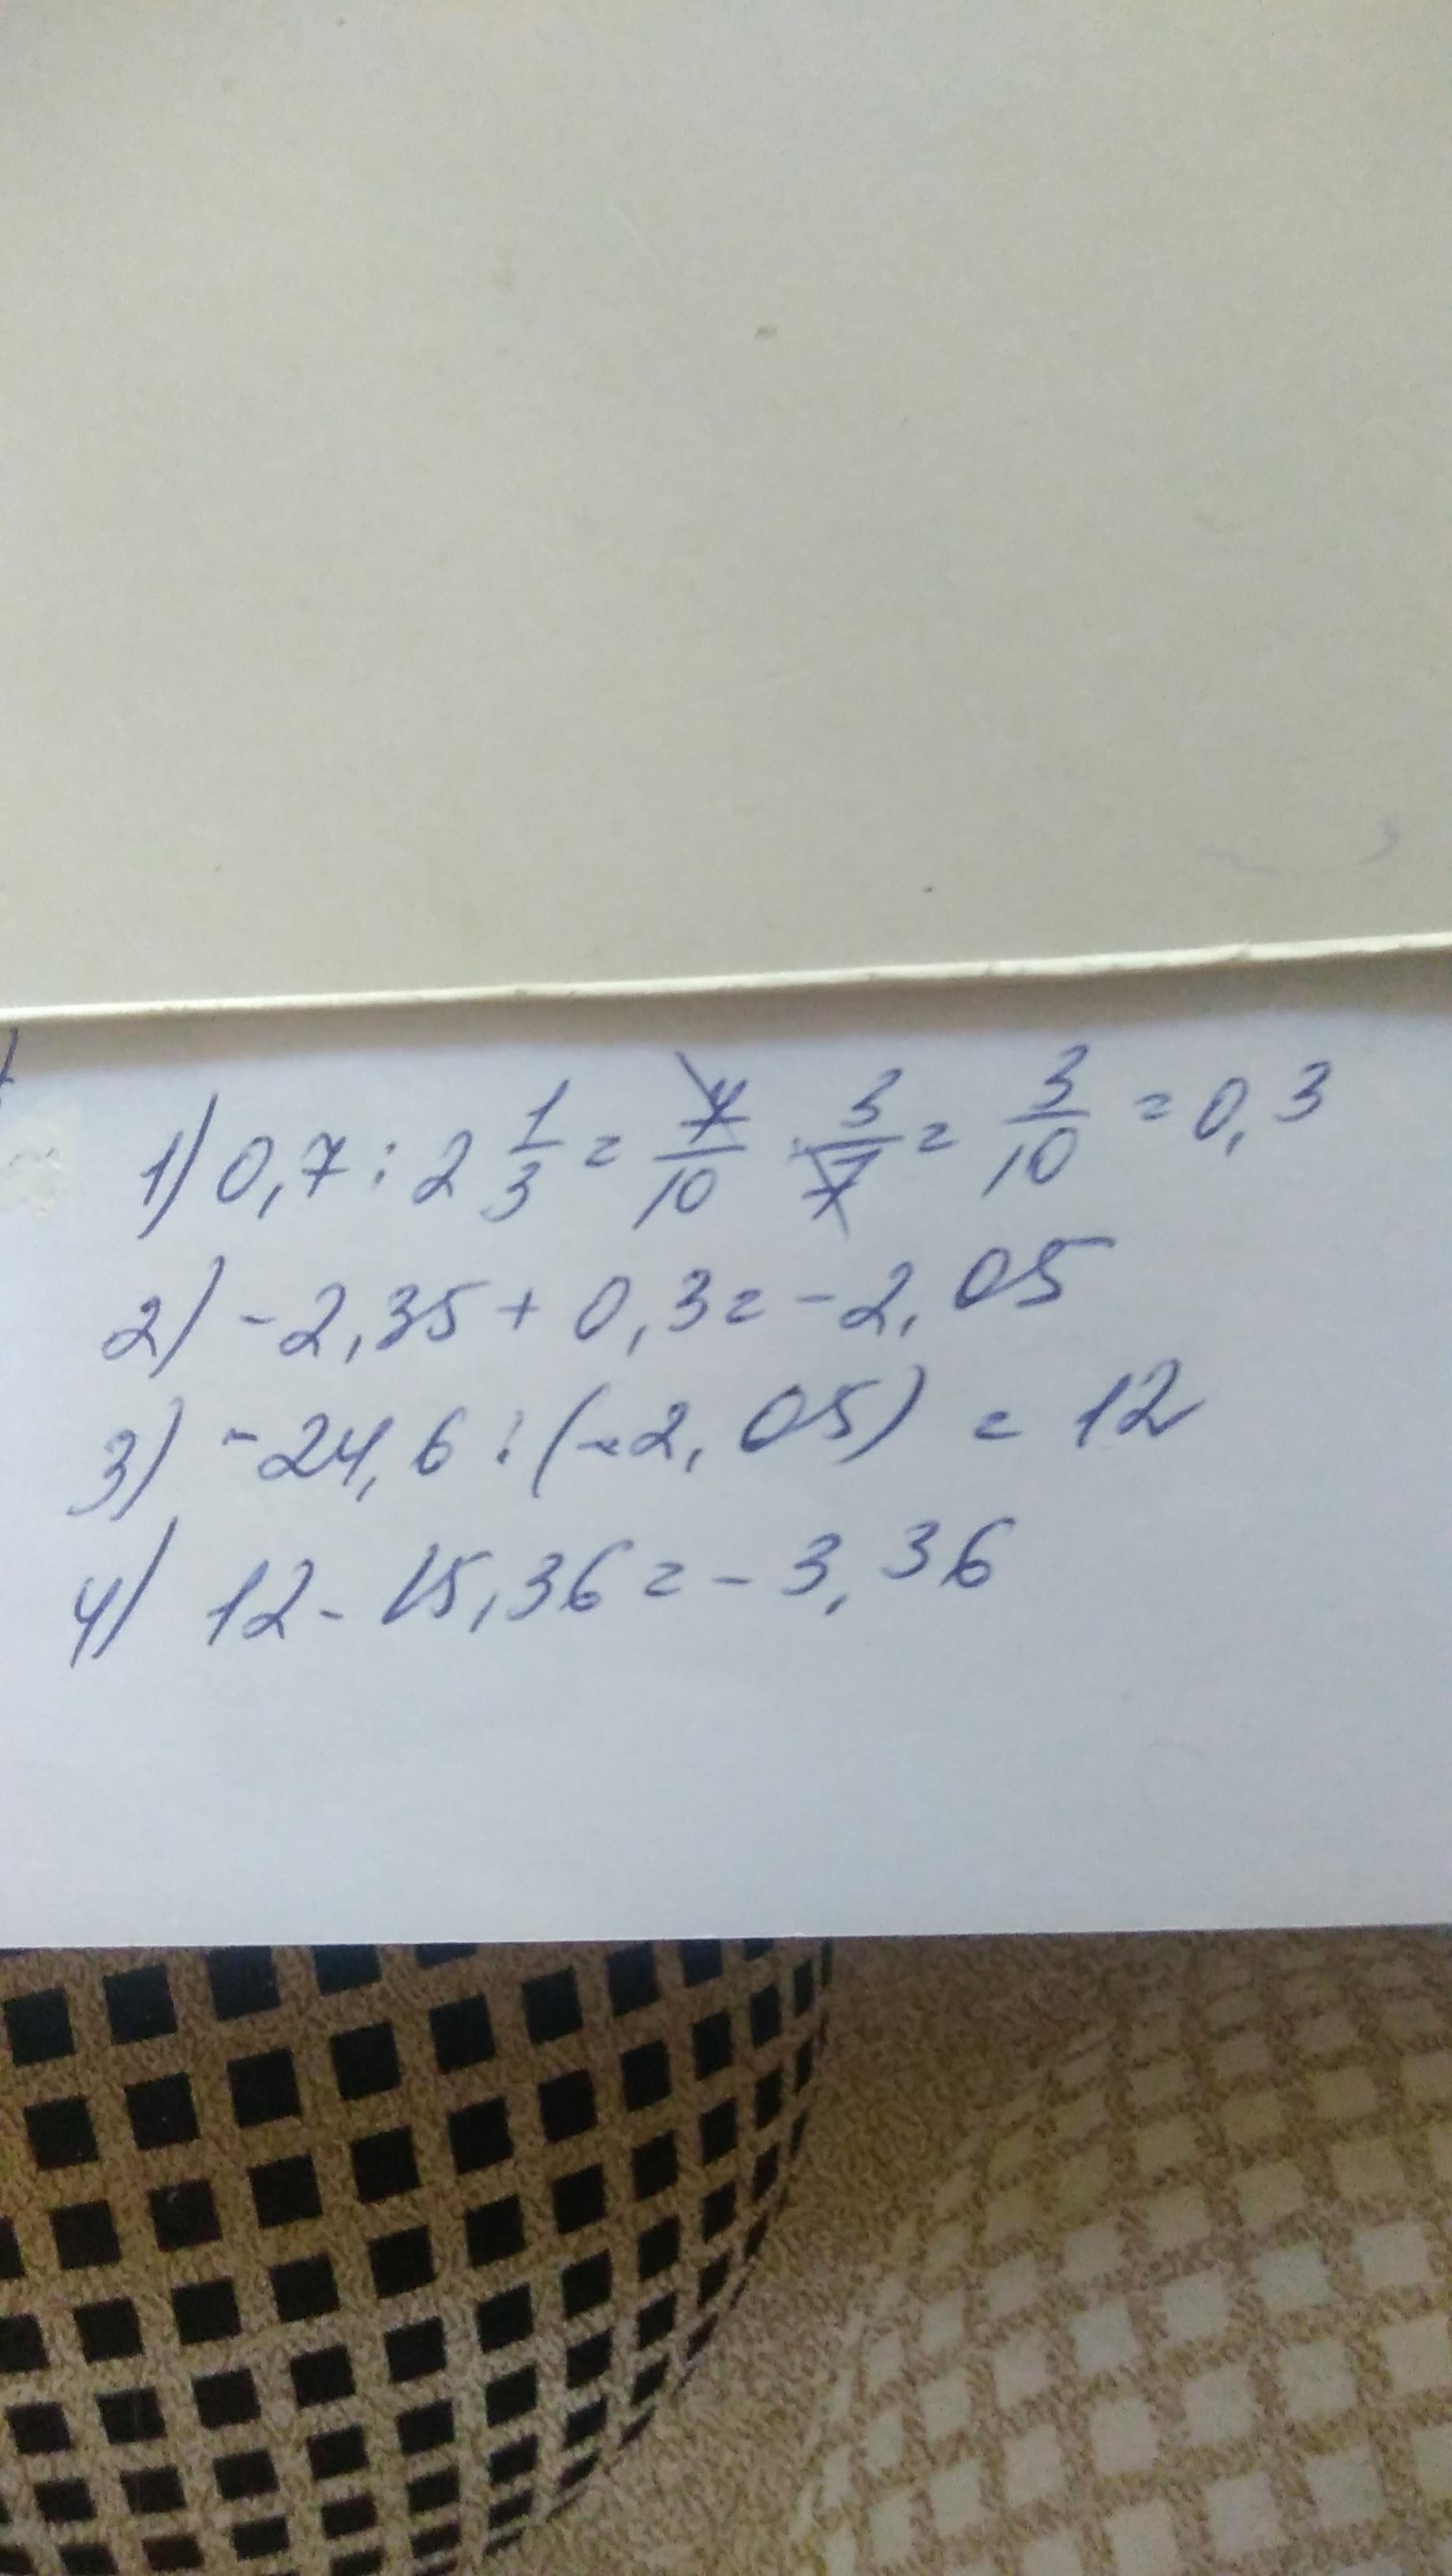 1) 0,7 : 2 1/3 = 7/10 · 3/7 = 3/10 = 0,3
2) -2,35 + 0,3 = -2,05
3) -24,6 : (-2,05) = 12
4) 12 - 15,36 = -3,36